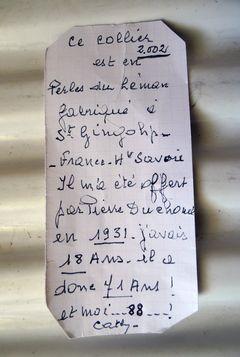 Ce collier
2.002
est en
Perles du Léman
fabriqué à
St Gingolph-
-France-Hte Savoie
Il m'a été offert
par Pierre Duchoud
en 1931. j'avais
18 Ans. il a
donc 71 Ans !
et moi...88...!